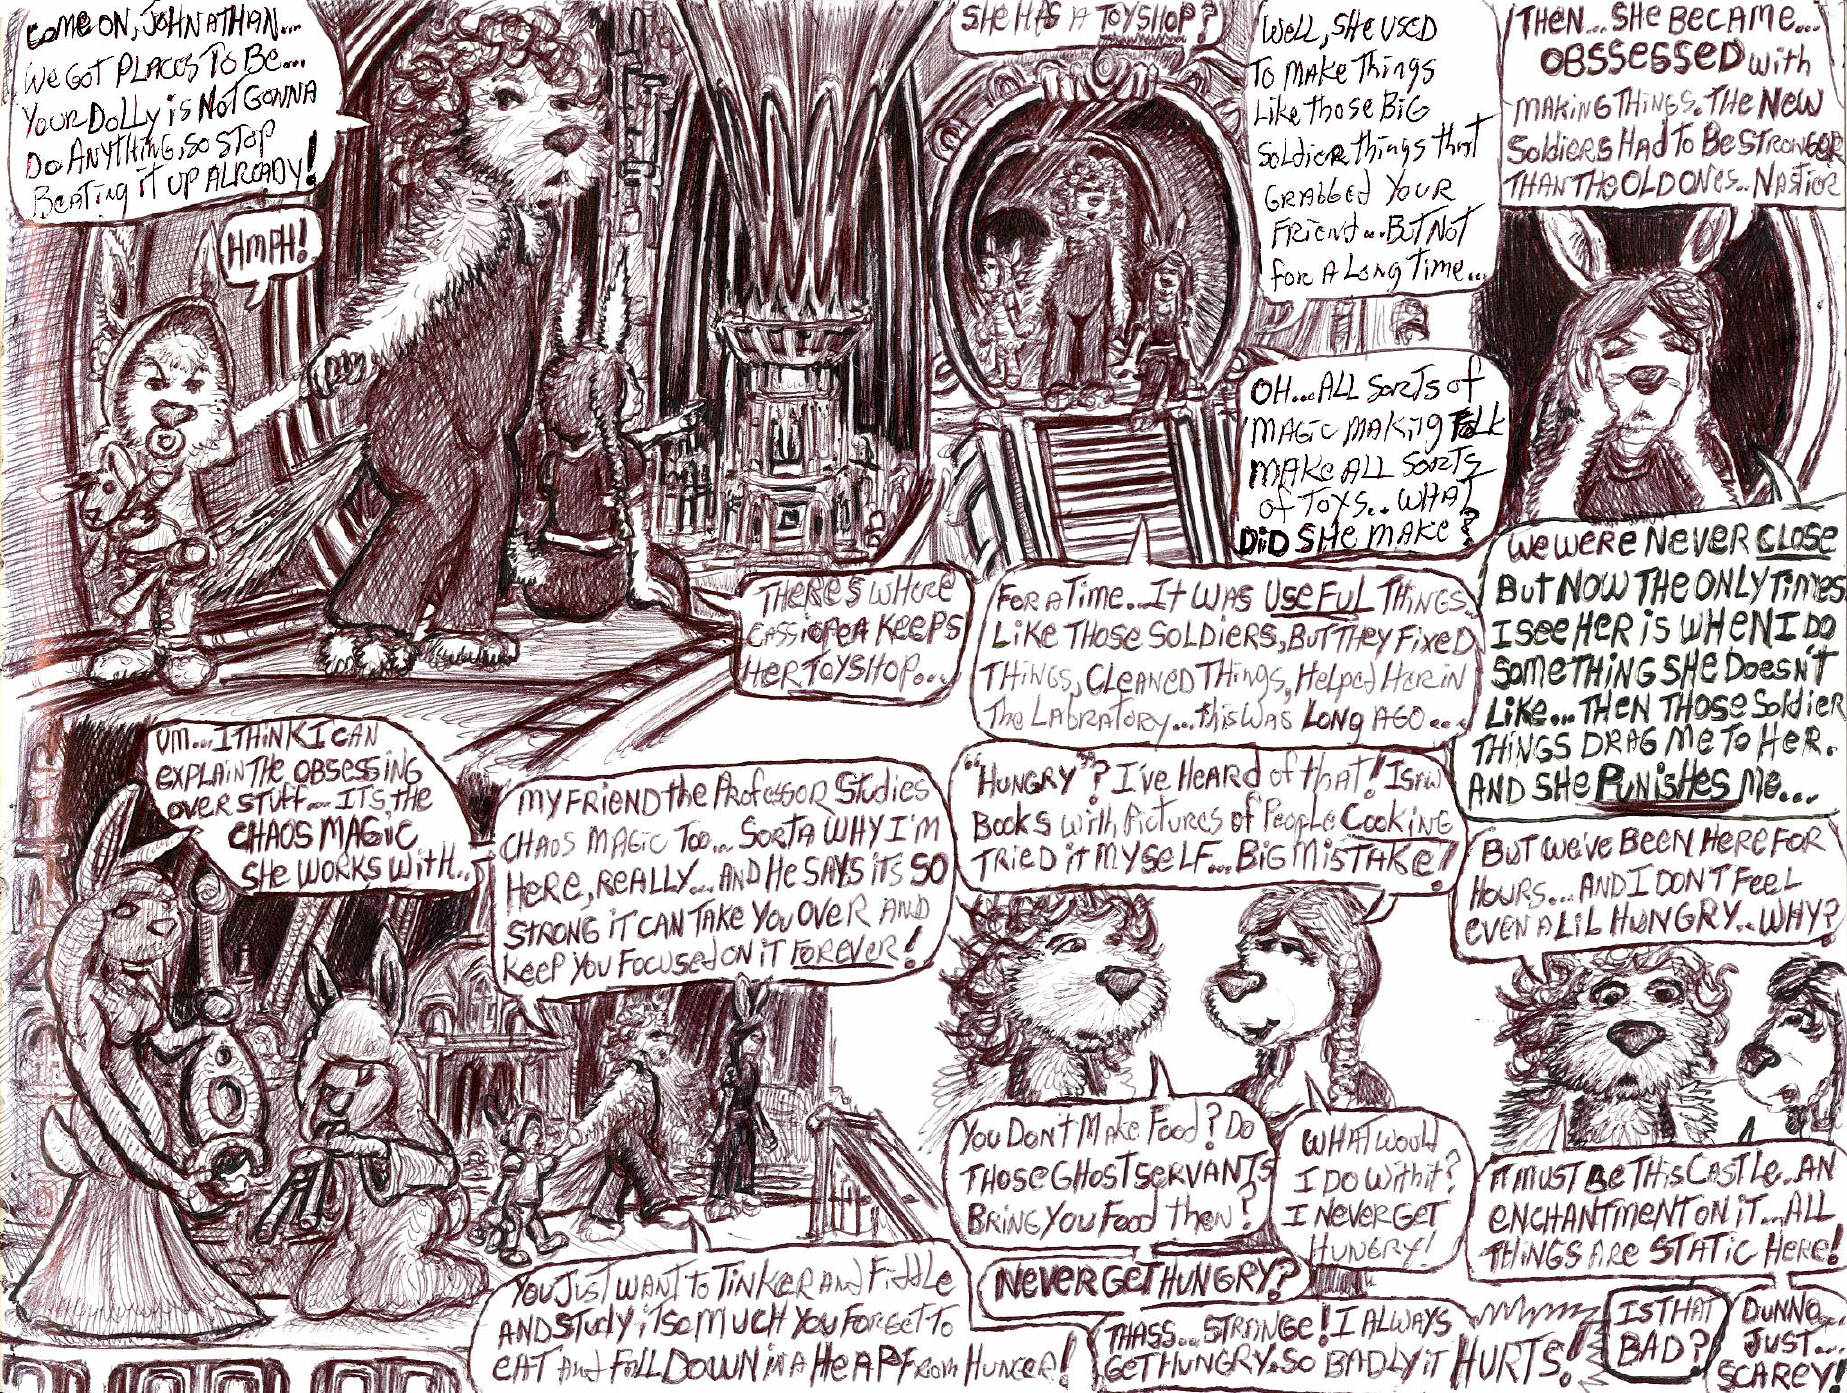 COME ON, JOHNATHAN...
WE GOT PLACES TO BE...
YOUR DOLLY IS NOT GONNA
DO ANYTHING, SO STOP
BEATING IT UP ALREADY!
HMPH!
THERE'S WHERE
CASSIOPEA KEEPS
HER TOYSHOP...
SHE HAS A TOYSHOP?
WELL, SHE USED
TO MAKE THINGS
LIKE THOSE BIG
SOLDIER THINGS THAT
GRABBED YOUR
FRIEND... BUT NOT
FOR A LONG TIME...
OH... ALL SORTS OF
MAGIC MAKING FOLK
MAKE ALL SORTS
OF TOYS.. WHAT
DID SHE MAKE?
FOR A TIME... IT WAS USEFUL THINGS,
LIKE THOSE SOLDIERS, BUT THEY FIXED
THINGS, CLEANED THINGS, HELPED HER IN
THE LABRATORY... THIS WAS LONG AGO...
THEN... SHE BECAME...
OBSSESSED WITH
MAKING THINGS. THE NEW
SOLDIERS HAD TO BE STRONGER
THAN THE OLD ONES.. NASTIER
WE WERE NEVER CLOSE
BUT NOW THE ONLY TIMES
I SEE HER IS WHEN I DO
SOMETHING SHE DOESN'T
LIKE... THEN THOSE SOLDIER
THINGS DRAG ME TO HER.
AND SHE PUNISHES ME...
UM... I THINK I CAN
EXPLAIN THE OBSESSING
OVER STUFF... IT'S THE
CHAOS MAGIC
SHE WORKS WITH...
MY FRIEND THE PROFESSOR STUDIES
CHAOS MAGIC TOO... SORTA WHY I'M
HERE, REALLY... AND HE SAYS IT'S SO
STRONG IT CAN TAKE YOU OVER AND
KEEP YOU FOCUSED ON IT FOREVER!
YOU JUST WANT TO TINKER AND FIDDLE
AND STUDY IT SO MUCH YOU FORGET TO
EAT AND FALL DOWN IN A HEAP FROM HUNGER!
"HUNGRY"? I'VE HEARD OF THAT! I SAW
BOOKS WITH PICTURES OF PEOPLE COOKING
TRIED IT MYSELF... BIG MISTAKE!
YOU DON'T MAKE FOOD? DO
THOSE GHOST SERVANTS
BRING YOU FOOD THEN?
WHAT WOULD
I DO WITH IT?
I NEVER GET
HUNGRY!
NEVER GET HUNGRY?
THASS... STRANGE! I ALWAYS
GET HUNGRY. SO BADLY IT HURTS!
BUT WE'VE BEEN HERE FOR
HOURS... AND I DON'T FEEL
EVEN A LIL HUNGRY... WHY?
IT MUST BE THIS CASTLE.. AN
ENCHANTMENT ON IT... ALL
THINGS ARE STATIC HERE!
IS THAT
BAD?
DUNNO...
JUST...
SCAREY!